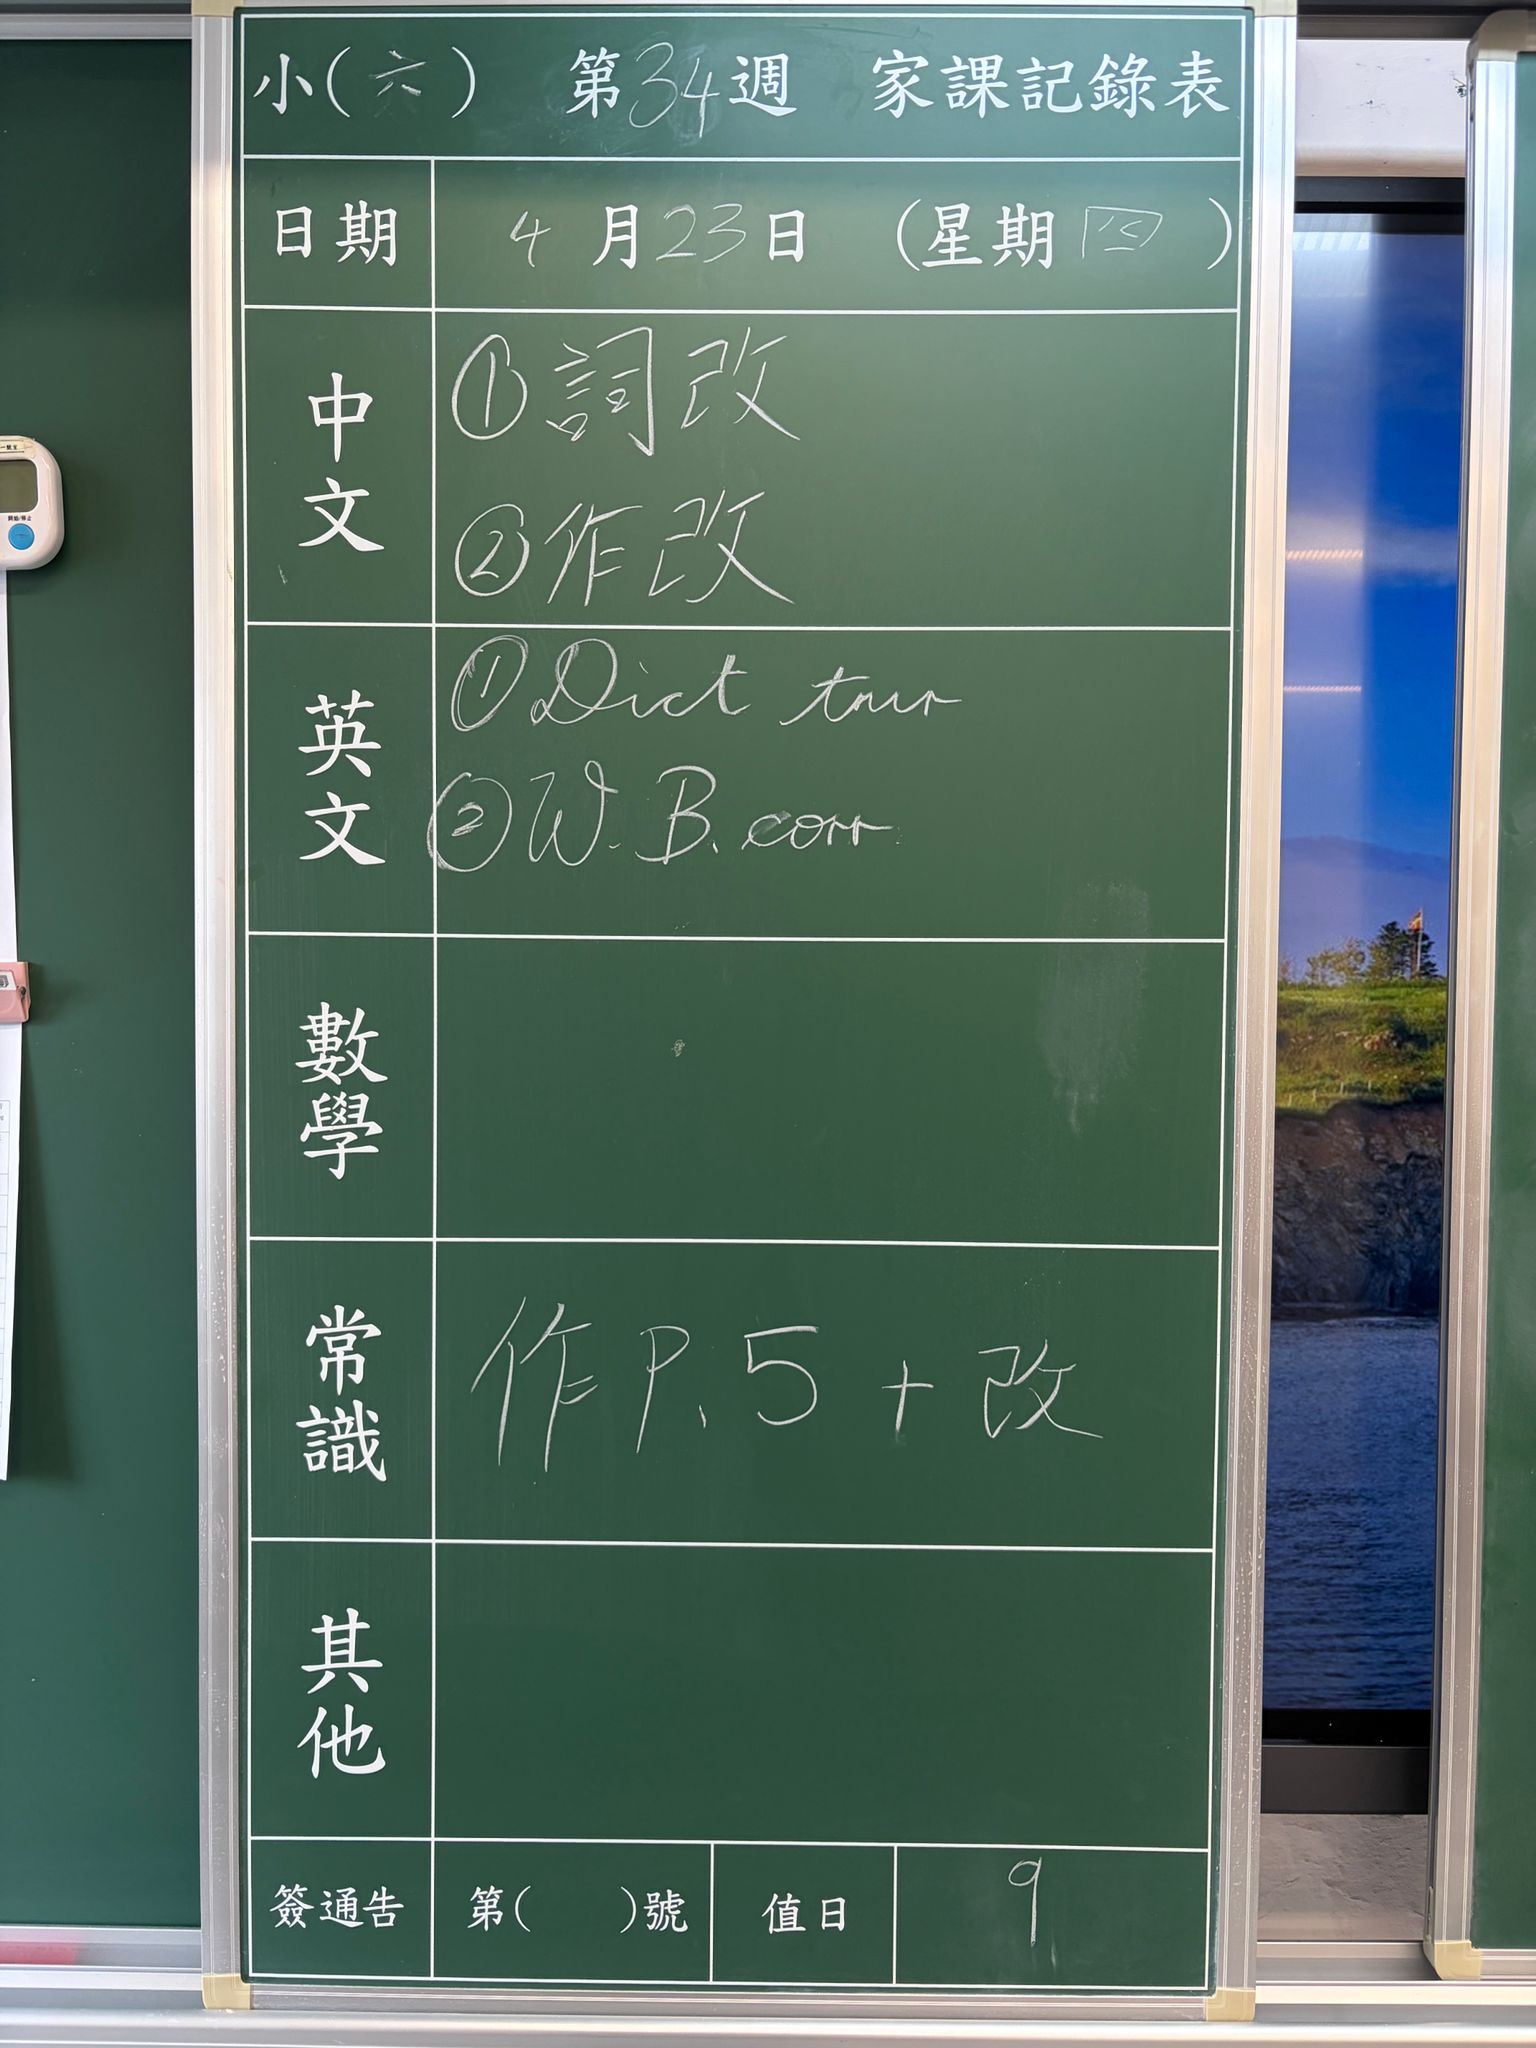 小(六) 第34週 家課記錄表
日期 4月23日 (星期四)
中文
①詞改
②作改
英文
①Dict
②W.B. corr
數學
常識
作P.5+改
其他
簽通告 第( )號 值日 9